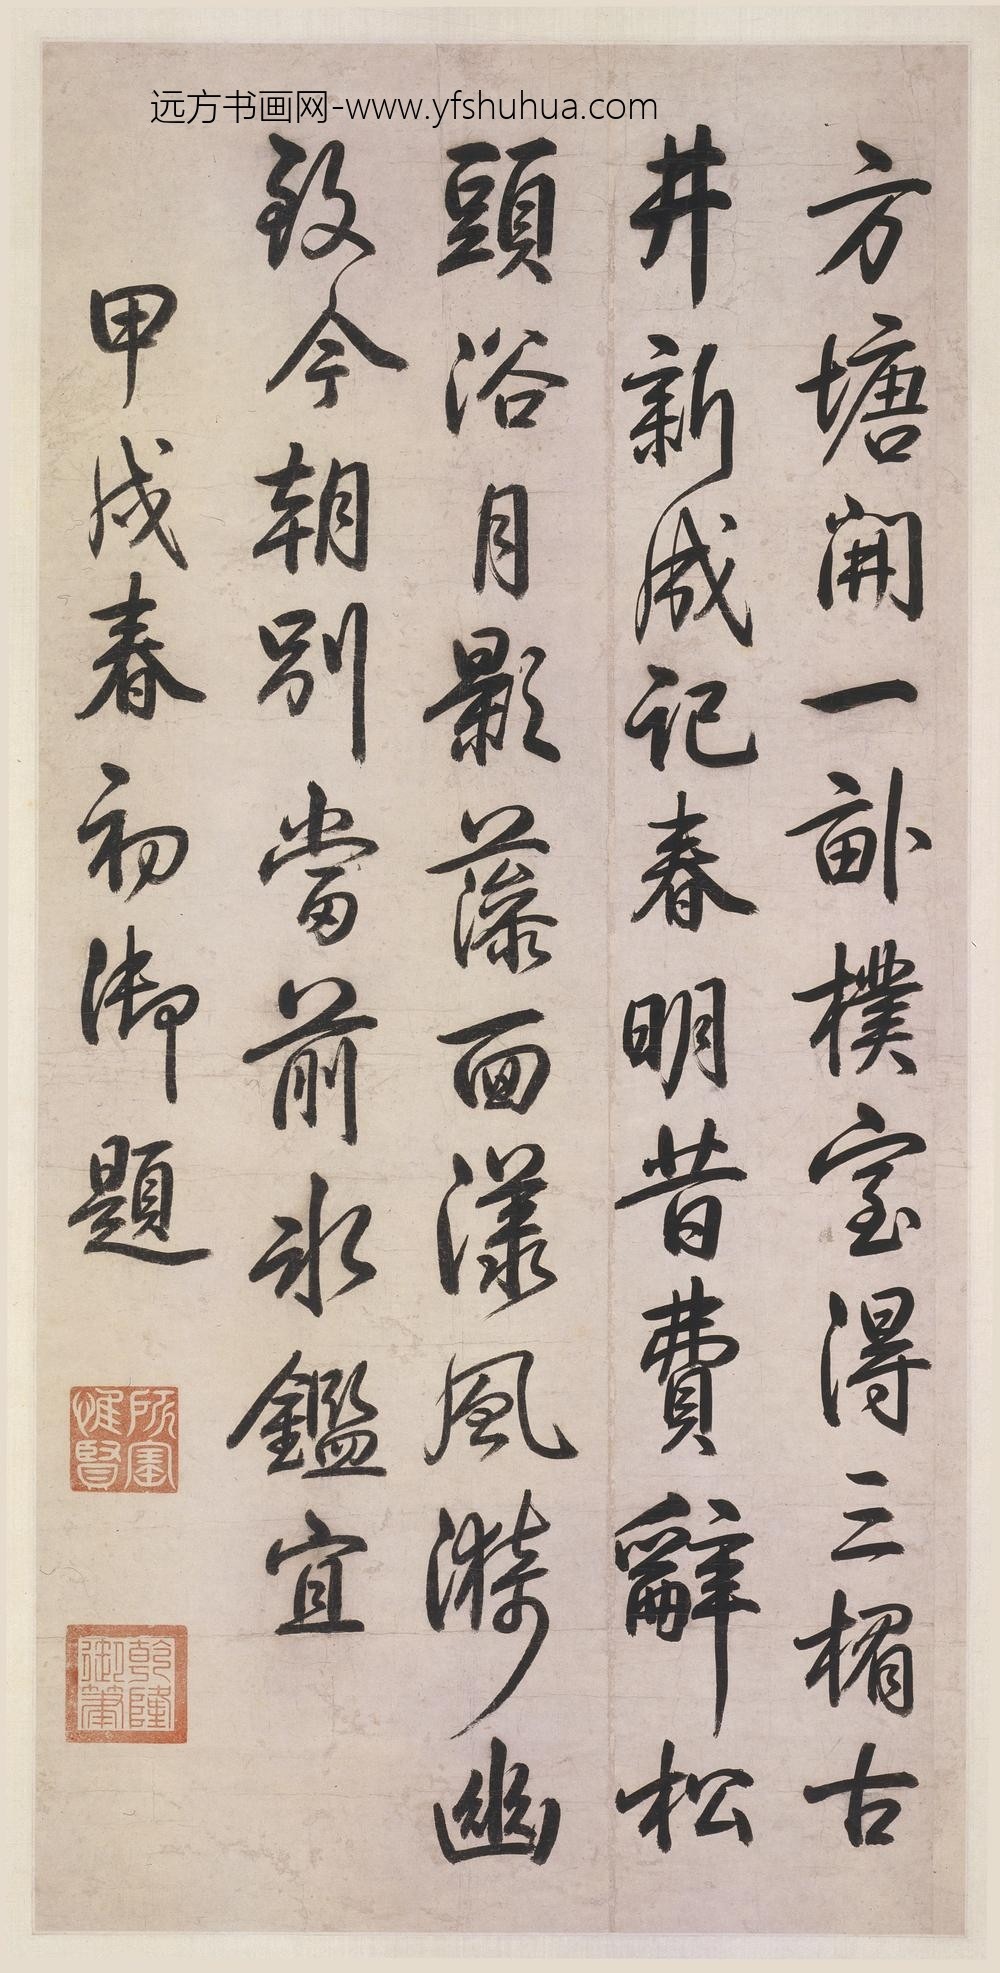 远方书画网-www.yfshuhua.com
方塘開一畝樸室得三楣古
井新成記春明昔費辭松
頭浴月影藻面漾風漪幽
致今朝別當前冰鑑宜
甲戌春初御題
所寳惟賢
乾隆御筆